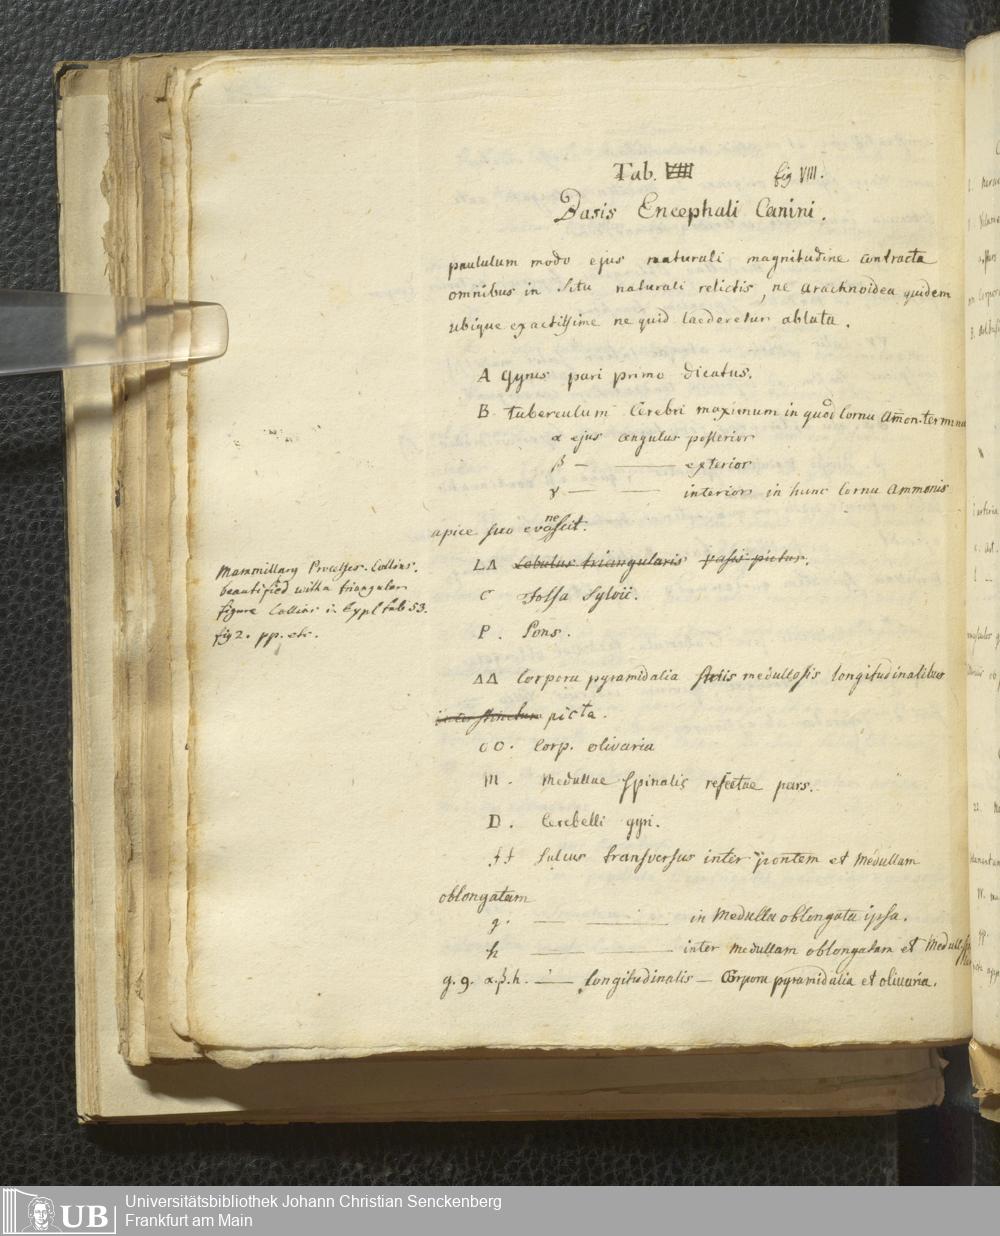 Tab. VIII fig VIII.
Basis Encephali Canini.
paululum modo ejus naturali magnitudine contracta
omnibus in Situ naturali relictis, ne arachnoidea quidem
ubique exactissime ne quid laederetur ablata.
A Gyrus pari primo dicatus.
B tuberculum Cerebri maximum in quod Cornu Amon. termina
α ejus angulus posterior
β — —— exterior
γ — —— interior in hunc Cornu Ammonis
apice suo evanescit.
LΔ Lobulus triangularis vasis pictus.
Mammillary Processes. Collins.
beautified with a triangular
figure Collins in Expl tab 53.
fig 2. pp. etc.
C Fossa Sylvii.
P. Pons.
ΔΔ Corpora pyramidalia striis medullosis longitudinalibus
picta.
OO. Corp. olivaria
M. Medullae Spinalis resectae pars.
D. Cerebelli gyri.
ff Sulcus transversus inter pontem et Medullam
oblongatam
g. —— —— in Medulla oblongata ipsa.
h —— —— inter Medullam oblongatam et Medull
g. g. α.β.h. —— longitudinalis — Corpora pyramidalia et olivaria.
UB
Universitätsbibliothek Johann Christian Senckenberg
Frankfurt am Main